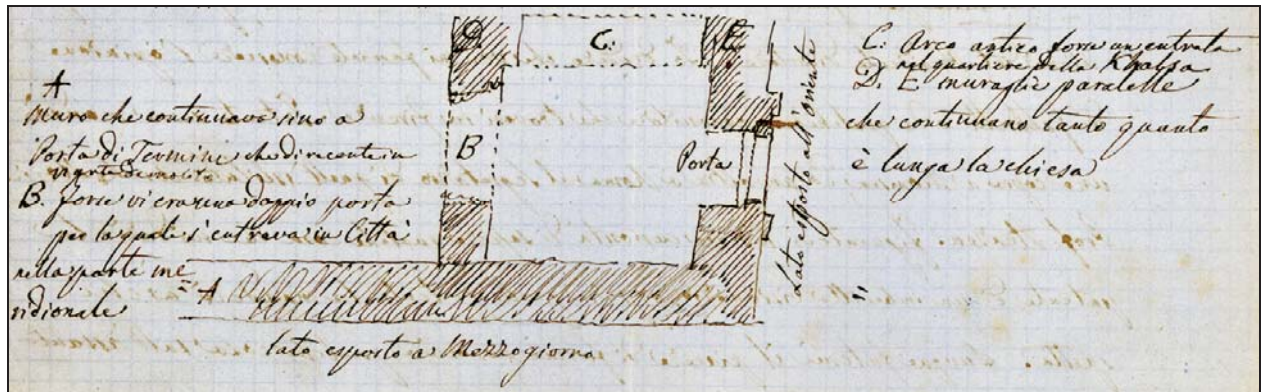 A
Muro che continuava sino a
Porta di Termini che di recente in
parte demolita
B. forse vi era una doppia porta
per la quale s'entrava in Città
nella parte me
ridionale
D.
C:
E
B
Porta
A
Lato esposto all'Oriente
lato esposto a Mezzogiorno
C: Arco antico forse un entrata
nel quartiere della Khalsa
D. E muraglie paralelle
che continuano tanto quanto
è lunga la chiesa